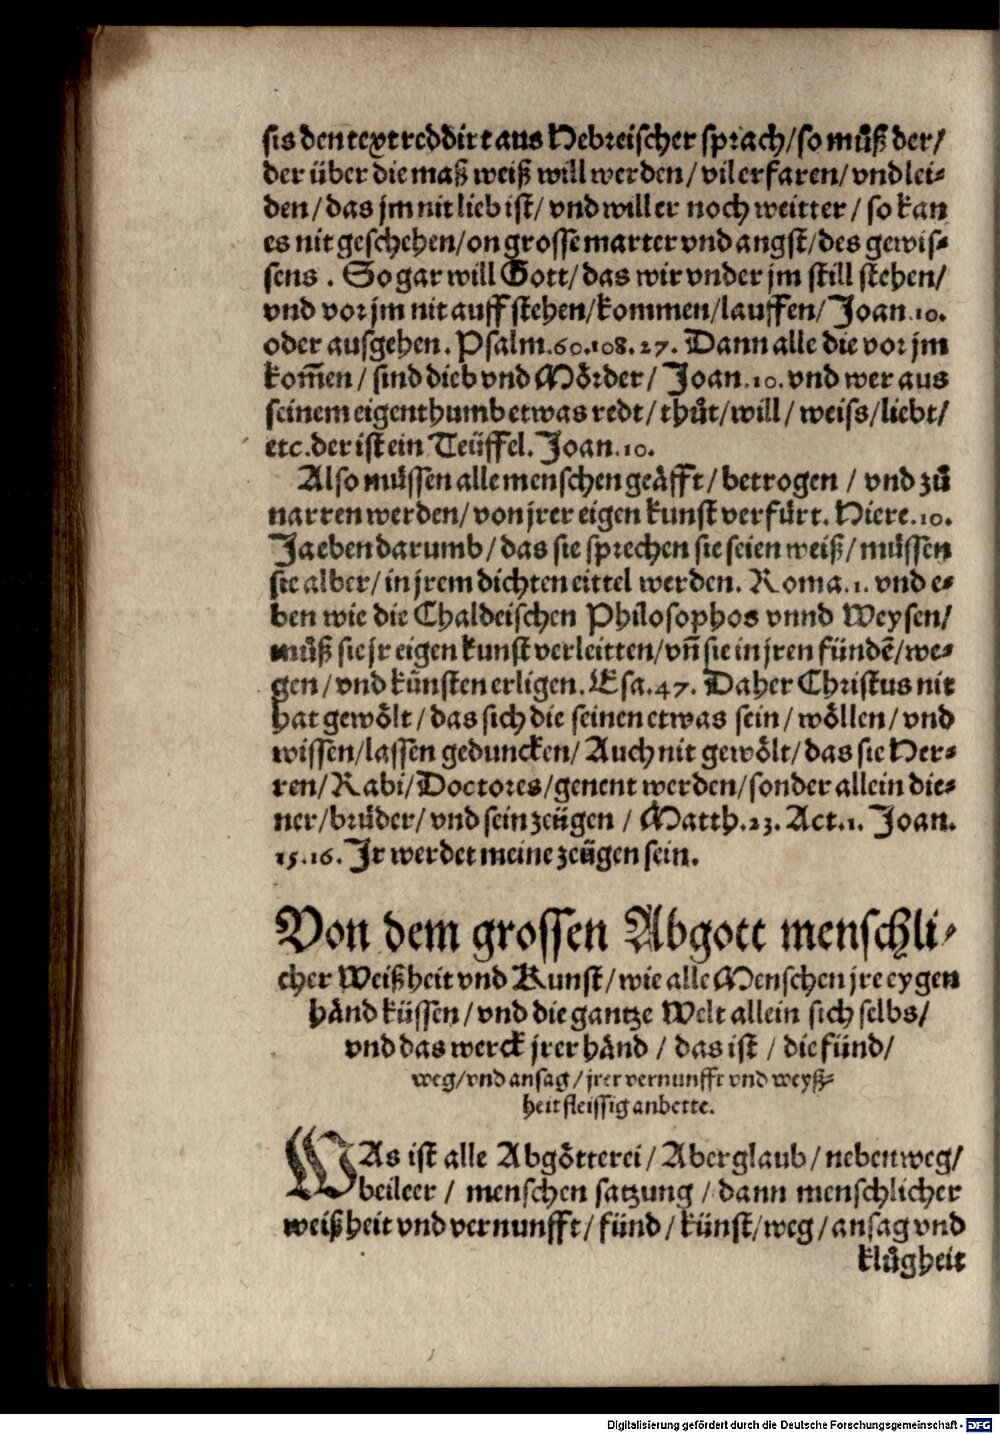 sis den text reddirt aus Hebreischer sprach/ so můß der/
der über die maß weiß will werden/ vil erfaren/ vnd lei-
den/ das jm nit lieb ist/ vnd will er noch weitter/ so kan
es nit geschehen/ on grosse marter vnd angst/ des gewis-
sens. So gar will Gott/ das wir vnder jm still stehen/
vnd vor jm nit auff stehen/ kommen/ lauffen/ Joan.10.
oder ausgehen. Psalm.60.108.27. Dann alle die vor jm
kom̄en/ sind dieb vnd Mörder/ Joan.10. vnd wer aus
seinem eigenthumb etwas redt/ thůt/ will/ weiss/ liebt/
etc. der ist ein Teüffel. Joan.10.
Also müssen alle menschen geäfft/ betrogen/ vnd zů
narren werden/ von jrer eigen kunst verfürt. Hiere.10.
Ja eben darumb/ das sie sprechen sie seien weiß/ müssen
sie alber/ in jrem dichten eittel werden. Roma.1. vnd e-
ben wie die Chaldeischen Philosophos vnnd Weysen/
můß sie jr eigen kunst verleitten/ vn̄ sie in jren fündē/ we-
gen/ vnd künsten erligen. Esa.47. Daher Christus nit
hat gewölt/ das sich die seinen etwas sein/ wöllen/ vnd
wissen/ lassen geduncken/ Auch nit gewölt/ das sie Her-
ren/ Rabi/ Doctores/ genent werden/ sonder allein die-
ner/ brüder/ vnd sein zeügen/ Matth.23. Act.1. Joan.
15.16. Jr werdet meine zeügen sein.
Von dem grossen Abgott menschli-
cher Weißheit vnd Kunst/ wie alle Menschen jre eygen
händ küssen/ vnd die gantze Welt allein sich selbs/
vnd das werck jrer händ/ das ist/ die fünd/
weg/ vnd ansag/ jrer vernunfft vnd weyß-
heit fleissig anbette.
WAs ist alle Abgötterei/ Aberglaub/ nebenweg/
beileer/ menschen satzung/ dann menschlicher
weißheit vnd vernunfft/ fünd/ künst/ weg/ ansag vnd
klůgheit
Digitalisierung gefördert durch die Deutsche Forschungsgemeinschaft - DFG